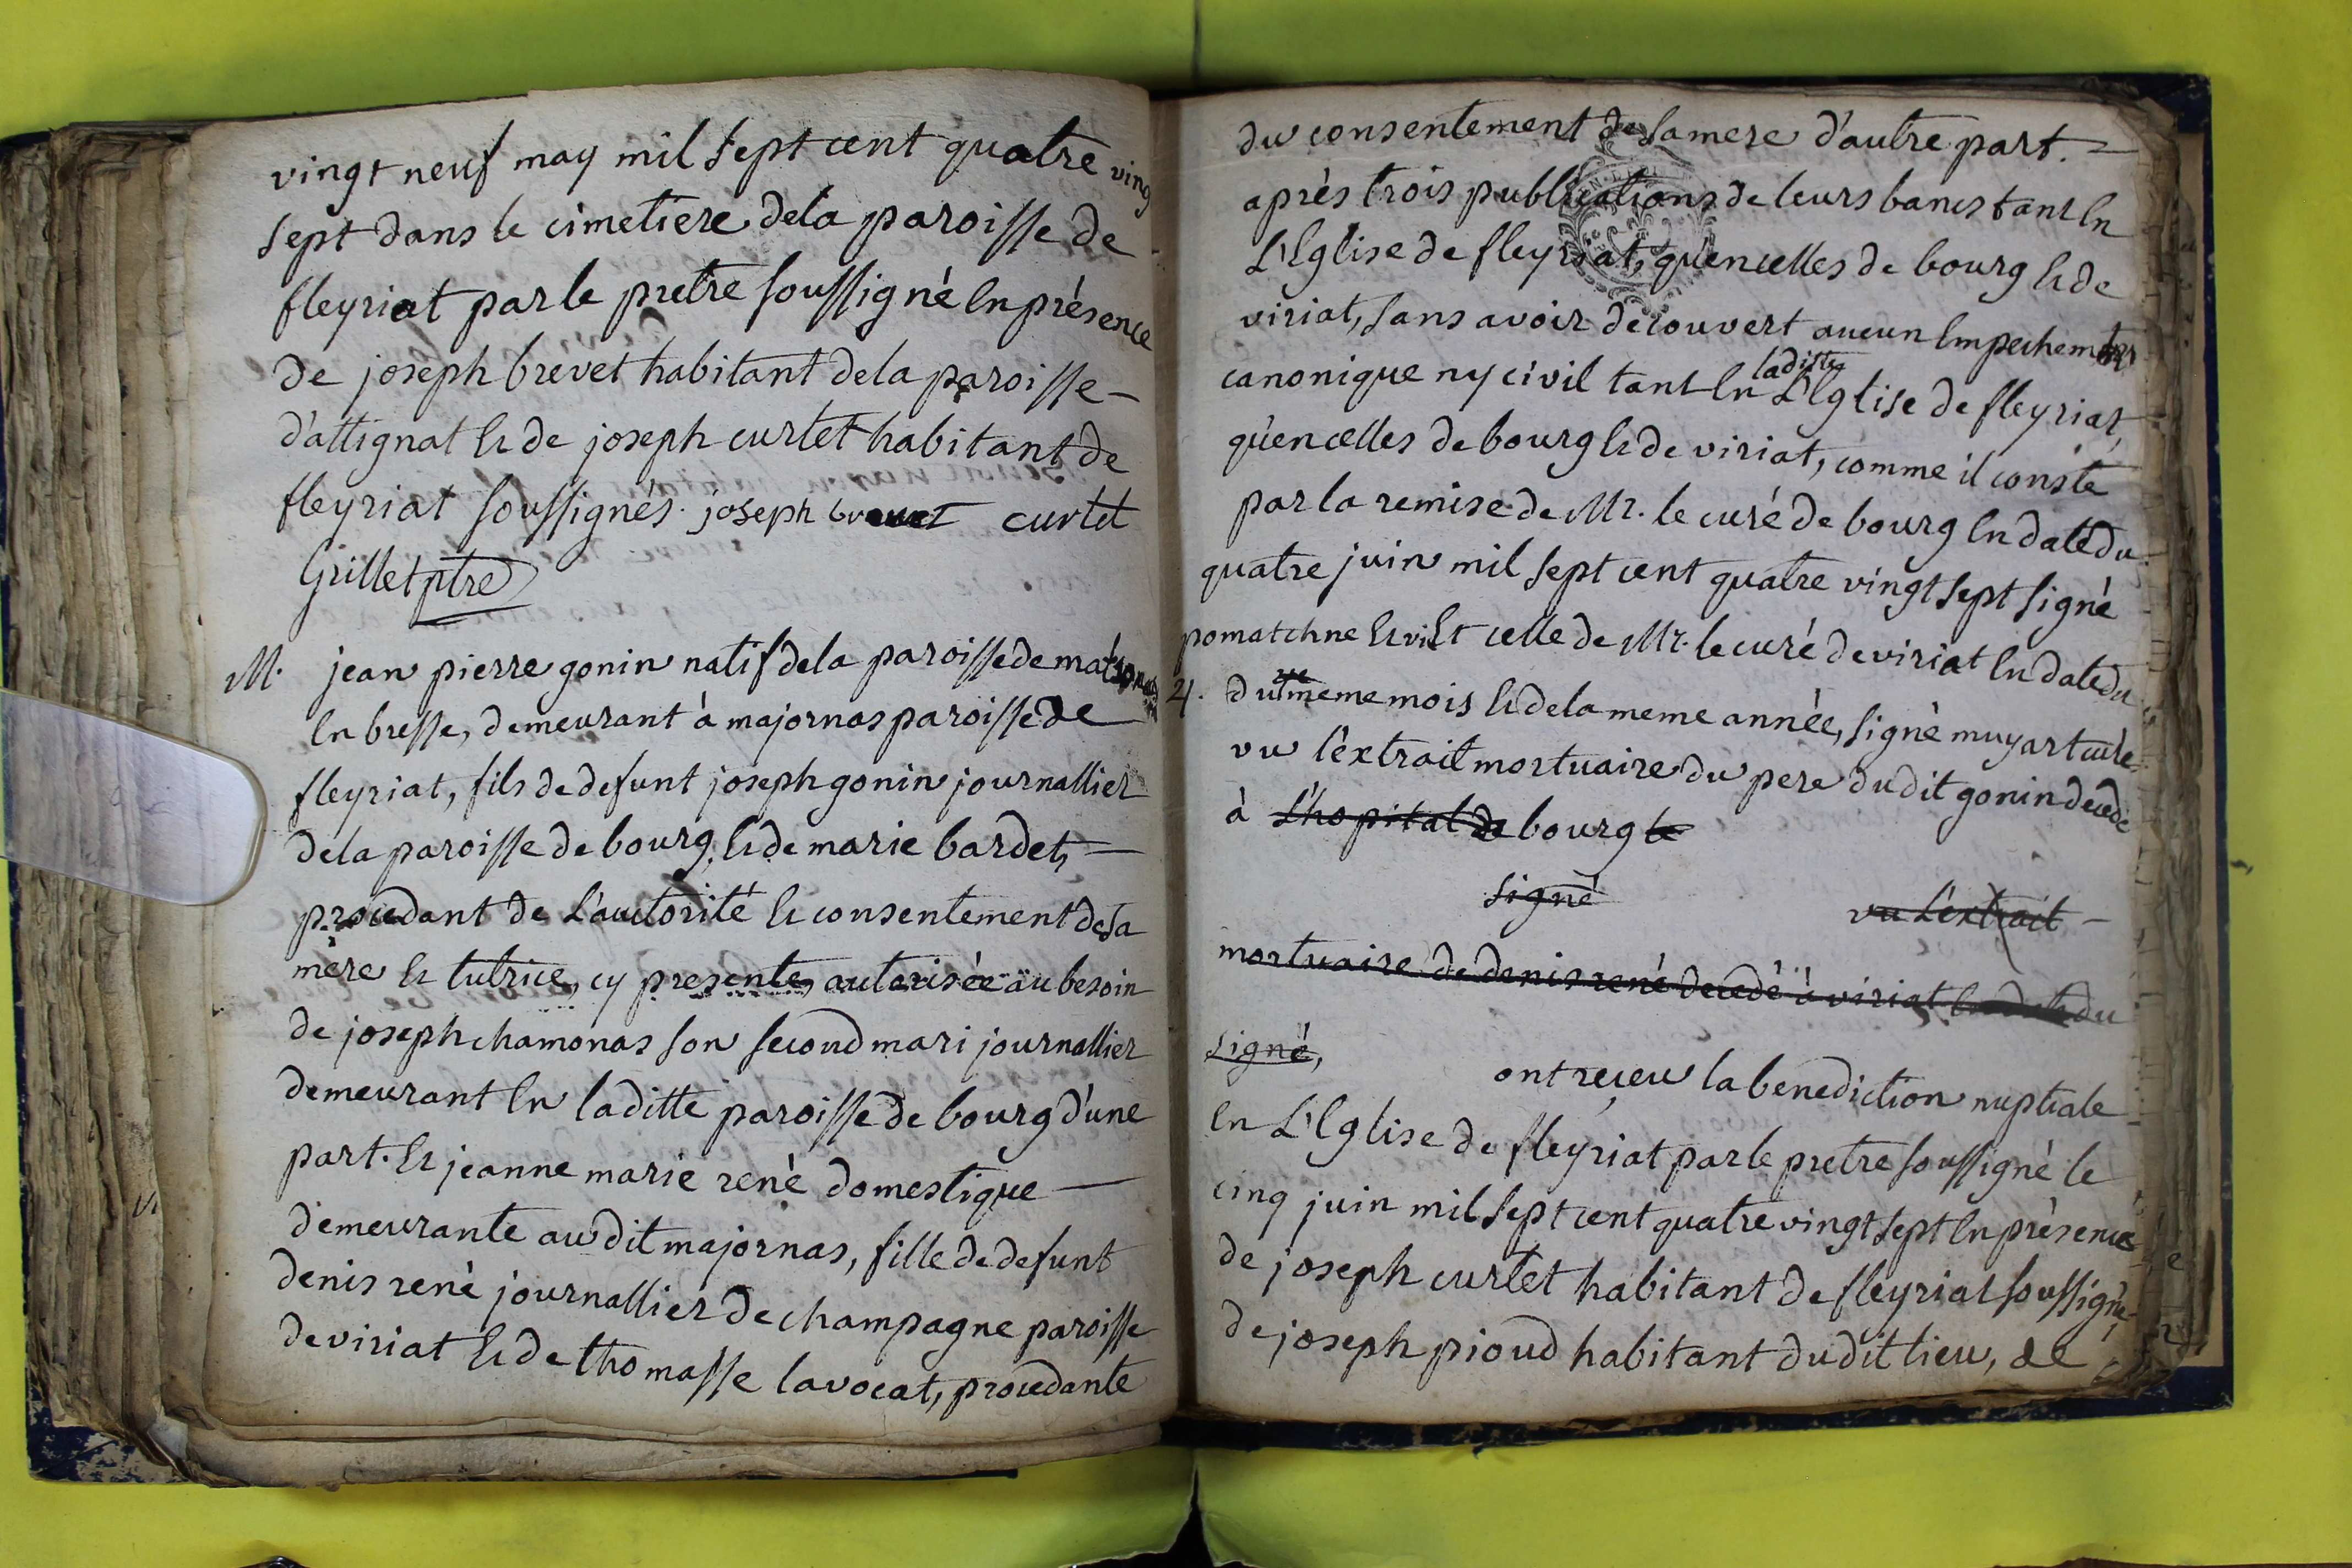 vingt neuf may mil sept cent quatre ving
sept dans le cimetiere dela paroisse de
fleyriat par le pretre soussigné en présence
de joseph brevet habitant dela paroisse
d'attignat & de joseph curtet habitant de
fleyriat soussignés. joseph brevet curtet
Grillet ptre
M. jean pierre gonin natif dela paroisse de
en bresse, demeurant à majornas paroisse de
fleyriat, fils de defunt joseph gonin journallier
dela paroisse de bourg, & de marie bardet,
procedant de l'autorité & consentement de sa
mère & tutrice, cy presente, autorisée au besoin
de joseph chamonas son second mari journallier
demeurant en laditte paroisse de bourg d'une
part. & jeanne marie rené domestique
demeurante audit majornas, fille de defunt
denis rené journallier de champagne paroisse
de viriat & de thomasse lavocat, procedante
du consentement de samere d'autre part.
après trois publications de leurs bancs tant en
l'Eglise de fleyriat, qu'encelles de bourg & de
viriat, sans avoir decouvert aucun empechement
canonique ny civil tant en laditte l'Eglise de fleyriat
qu'encelles de bourg & de viriat, comme il conste
par la remise de Mr. le curé de bourg en date du
quatre juin mil sept cent quatre vingt sept signé
pomatchne & celle de Mr. le curé de viriat en date du
4. du meme mois & dela meme année, signé muyart curé
vu l'extrait mortuaire du pere dudit gonin decedé
à l'hopital de bourg le
signé vu l'extrait
mortuaire de denis rené decedé à viriat en date du
signé, ont reçeu la benediction nuptiale
en l'Eglise de fleyriat par le pretre soussigné le
cinq juin mil sept cent quatre vingt sept en présence
de joseph curtet habitant de fleyriat soussigné,
de joseph pioud habitant dudit lieu, de